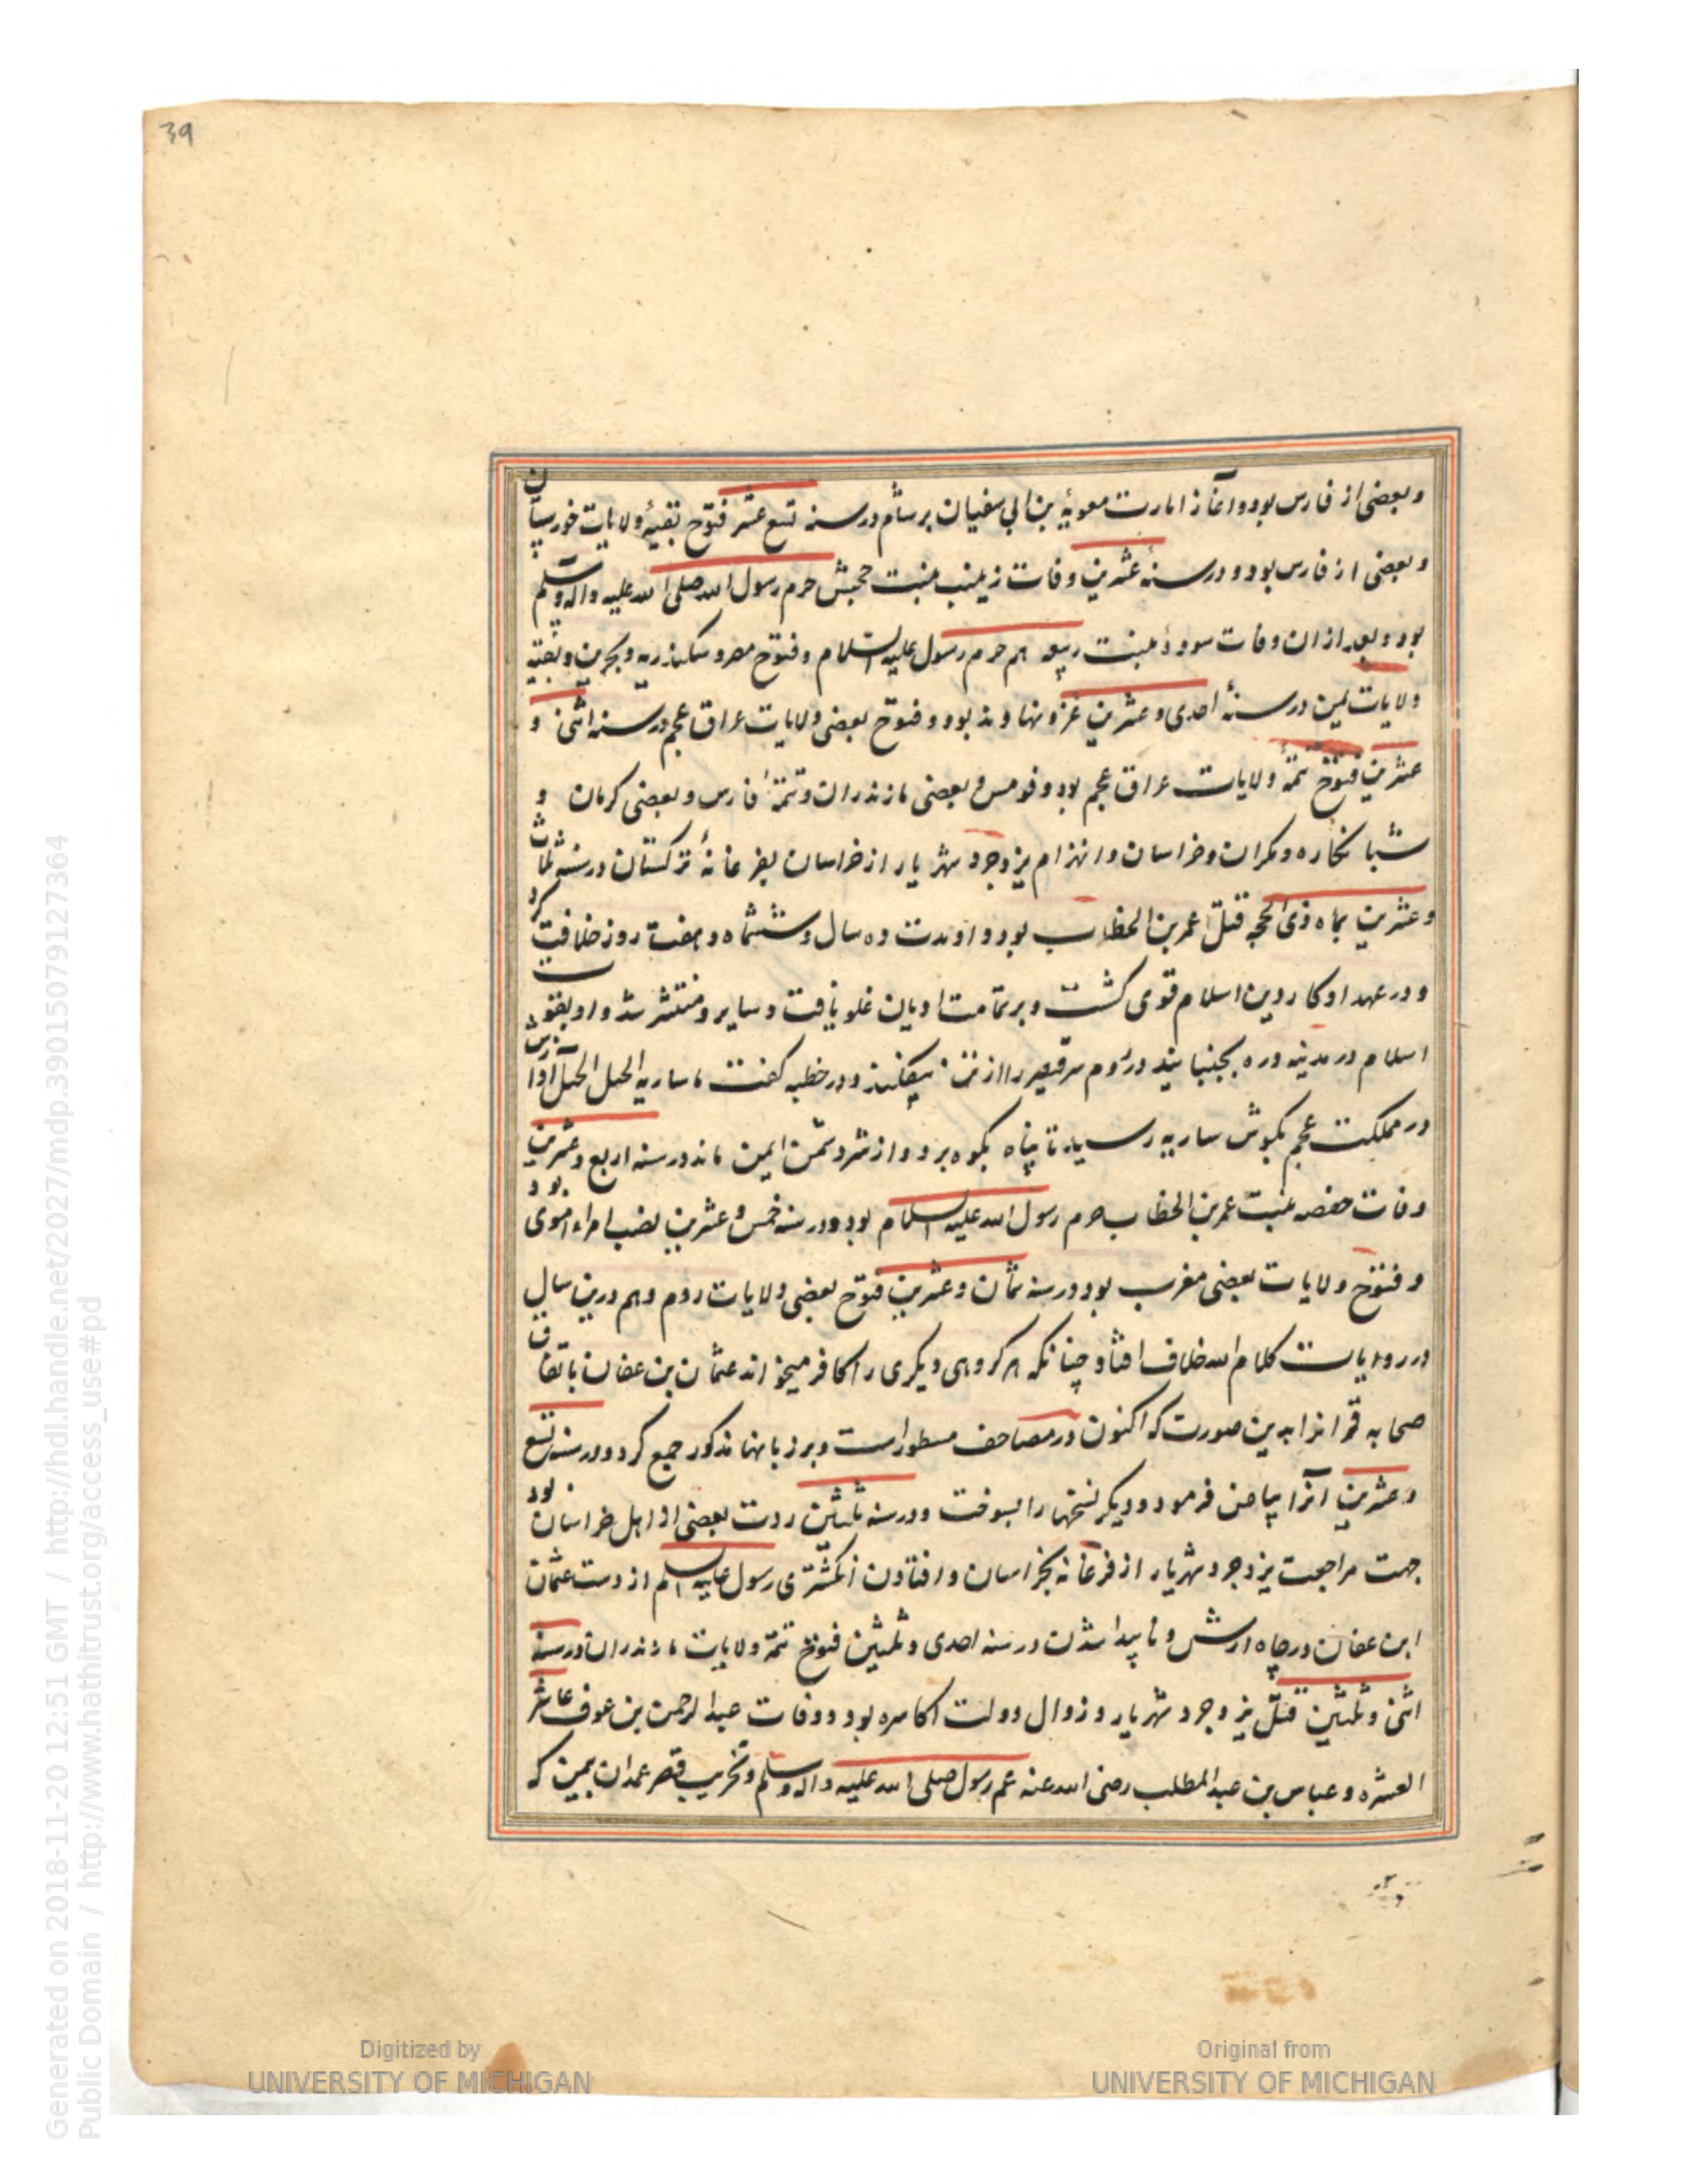 39
و بعضی از فارس بود و آغاز امارت معویه بن ابی سفیان بر شام در سنه تسع عشر فتوح بقیهٔ ولایات خورستان
و بعضی از فارس بود و در سنهٔ عشرین وفات زینب بنت حجش حرم رسول الله صلی الله علیه واله وسلم
بود و بعد از ان وفات سودهٔ بنت ربیعه هم حرم رسول علیه السلام و فتوح مصر و سکندریه و بحرین و بقیه
ولایات یمن در سنهٔ احدی و عشرین غزو نهاوند بود و فتوح بعضی ولایات عراق عجم در سنه اثنی و
عشرین فتوح تتمهٔ ولایات عراق عجم بود و قومس و بعضی مازندران و تتمهٔ فارس و بعضی کرمان و
شبانکاره و مکران و خراسان و انهزام یزدجرد شهریار از خراسان بفرغانهٔ ترکستان در سنه ثلاث
و عشرین بماه ذی الحجه قتل عمر بن الخطاب بود و او مدت ده سال و ششماه و هفت روز خلافت کرد
و در عهد او کار دین اسلام قوی کشت و بر تمامت ادیان غلو یافت و سایر و منتشر شد و او بقوت
اسلام در مدینه دره بجنبانید در روم سر قیصر را از تن بیفکند و در خطبه کفت یا ساریه الجبل الجبل آوازش
در مملکت عجم بکوش ساریه رسید تا پناه بکوه برد و از شر دشمن ایمن ماند در سنه اربع و عشرین
وفات حفصه بنت عمر بن الخطاب حرم رسول الله علیه السلام بود و در سنه خمس و عشرین نصب امراء اموی بود
و فتوح ولایات بعضی مغرب بود در سنه ثمان و عشرین فتوح بعضی ولایات روم و هم درین سال
در روایات کلام الله خلاف افتاد چنانکه هر کروهی دیکری را کافر میخواند عثمان بن عفان باتفاق
صحابه قرآنرا بدین صورت که اکنون در مصاحف مسطور است و بر زبانها مذکور جمع کرد و در سنه تسع
و عشرین آنرا بیاض فرمود و دیکر نسختها را بسوخت و در سنه ثلثین ردت بعضی از اهل خراسان بود
جهت مراجعت یزدجرد شهریار از فرغانه بخراسان و افتادن انکشتری رسول علیه السلم از دست عثمان
ابن عفان در چاه ارش و ناپیدا شدن در سنه احدی و ثلثین فتوح تتمهٔ ولایات مازندران در سنه
اثنی و ثلثین قتل یزدجرد شهریار و زوال دولت اکاسره بود و وفات عبدالرحمن بن عوف عاشر
العشره و عباس بن عبدالمطلب رضی الله عنه عم رسول صلی الله علیه واله وسلم و تخریب قصر غمدان بیمن که
Digitized by
UNIVERSITY OF MICHIGAN
Original from
UNIVERSITY OF MICHIGAN
Generated on 2018-11-20 12:51 GMT / http://hdl.handle.net/2027/mdp.39015079127364
Public Domain / http://www.hathitrust.org/access_use#pd